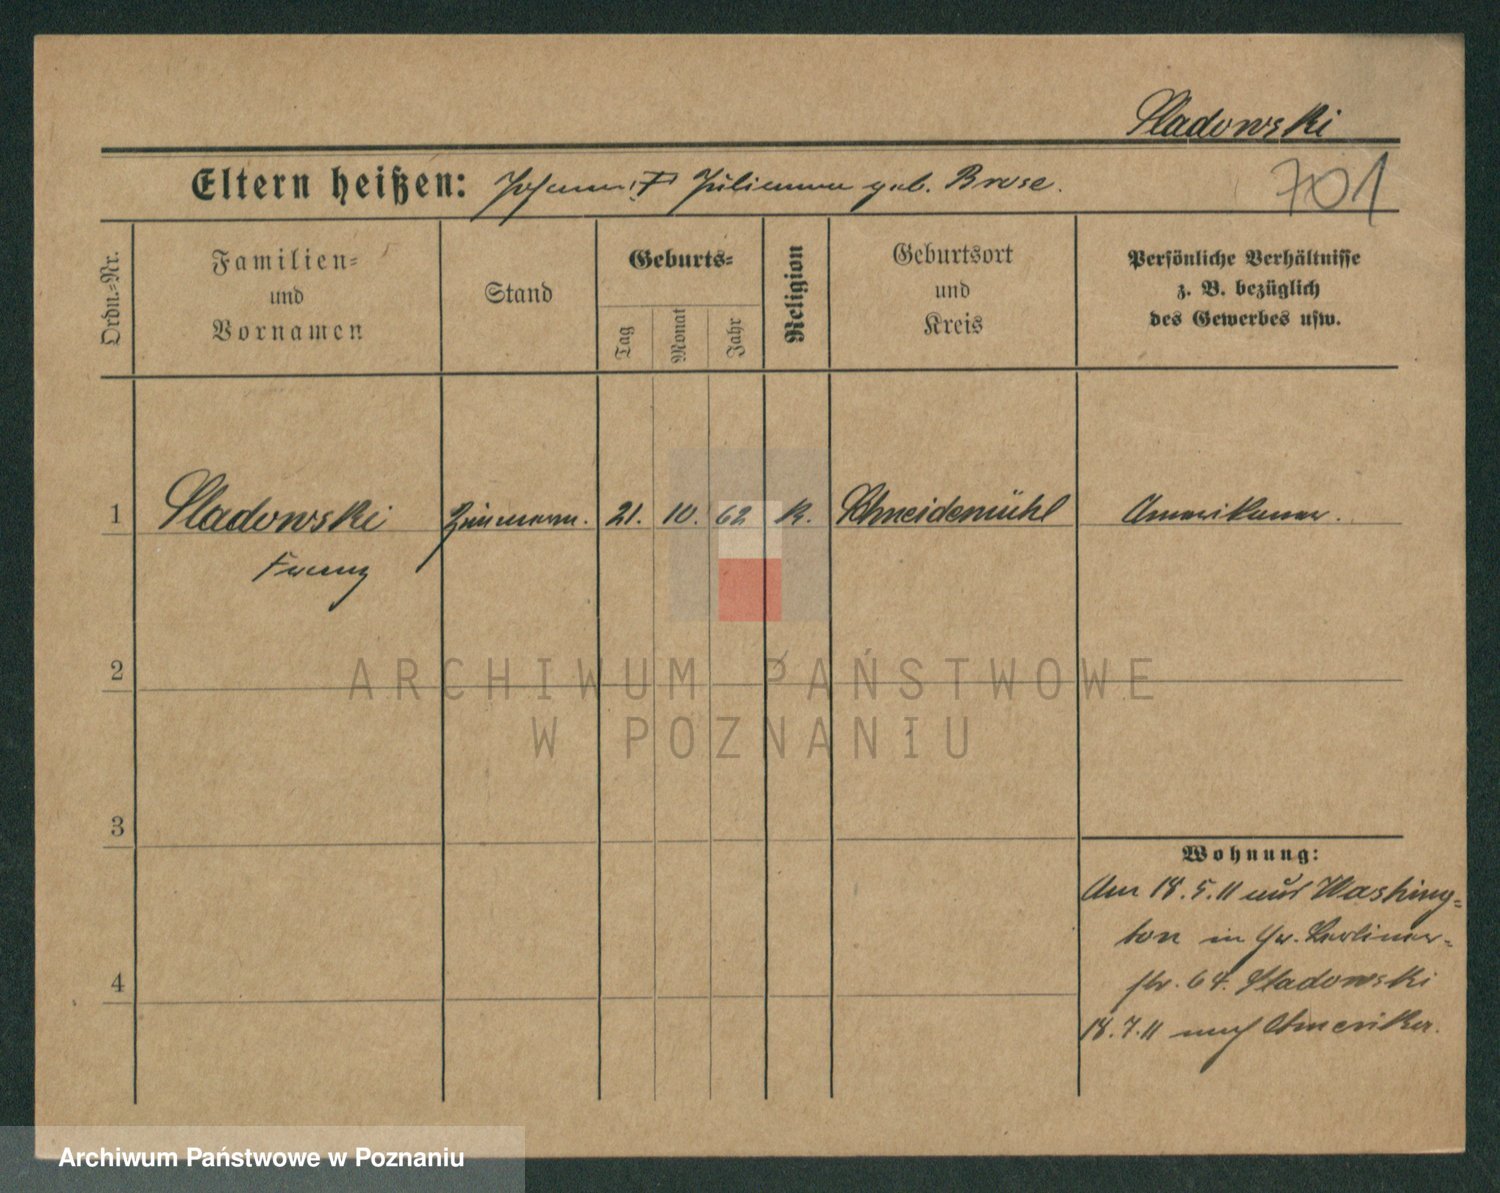 Sladowski
Eltern heißen: Johann, Julianna geb. Brose.
701
Ordn.-Nr.
Familien-
und
Vornamen
Stand
Geburts-
Tag
Monat
Jahr
Religion
Geburtsort
und
Kreis
Persönliche Verhältnisse
z. B. bezüglich
des Gewerbes usw.
1
Sladowski
Zimmerm.
21.
10.
62
K.
Schneidemühl
Amerikaner.
Franz
2
ARCHIWUM PAŃSTWOWE
W POZNANIU
3
Wohnung:
Am 18.5.11 aus Washing-
ton in Gr. Berliner-
4
str. 64. Sladowski
18.7.11 nach Amerika.
Archiwum Państwowe w Poznaniu